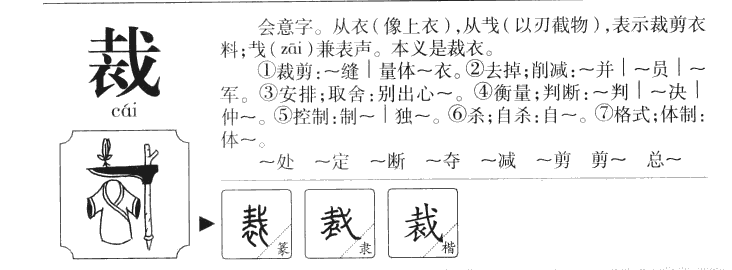 裁
cái
会意字。从衣(像上衣),从𢦏(以刃截物),表示裁剪衣
料;𢦏(zāi)兼表声。本义是裁衣。
①裁剪:～缝|量体～衣。②去掉;削减:～并|～员|～
军。③安排;取舍:别出心～。④衡量;判断:～判|～决|
仲～。⑤控制:制～|独～。⑥杀;自杀:自～。⑦格式;体制:
体～。
～处 ～定 ～断 ～夺 ～减 ～剪 剪～ 总～
裁 篆
裁 隶
裁 楷